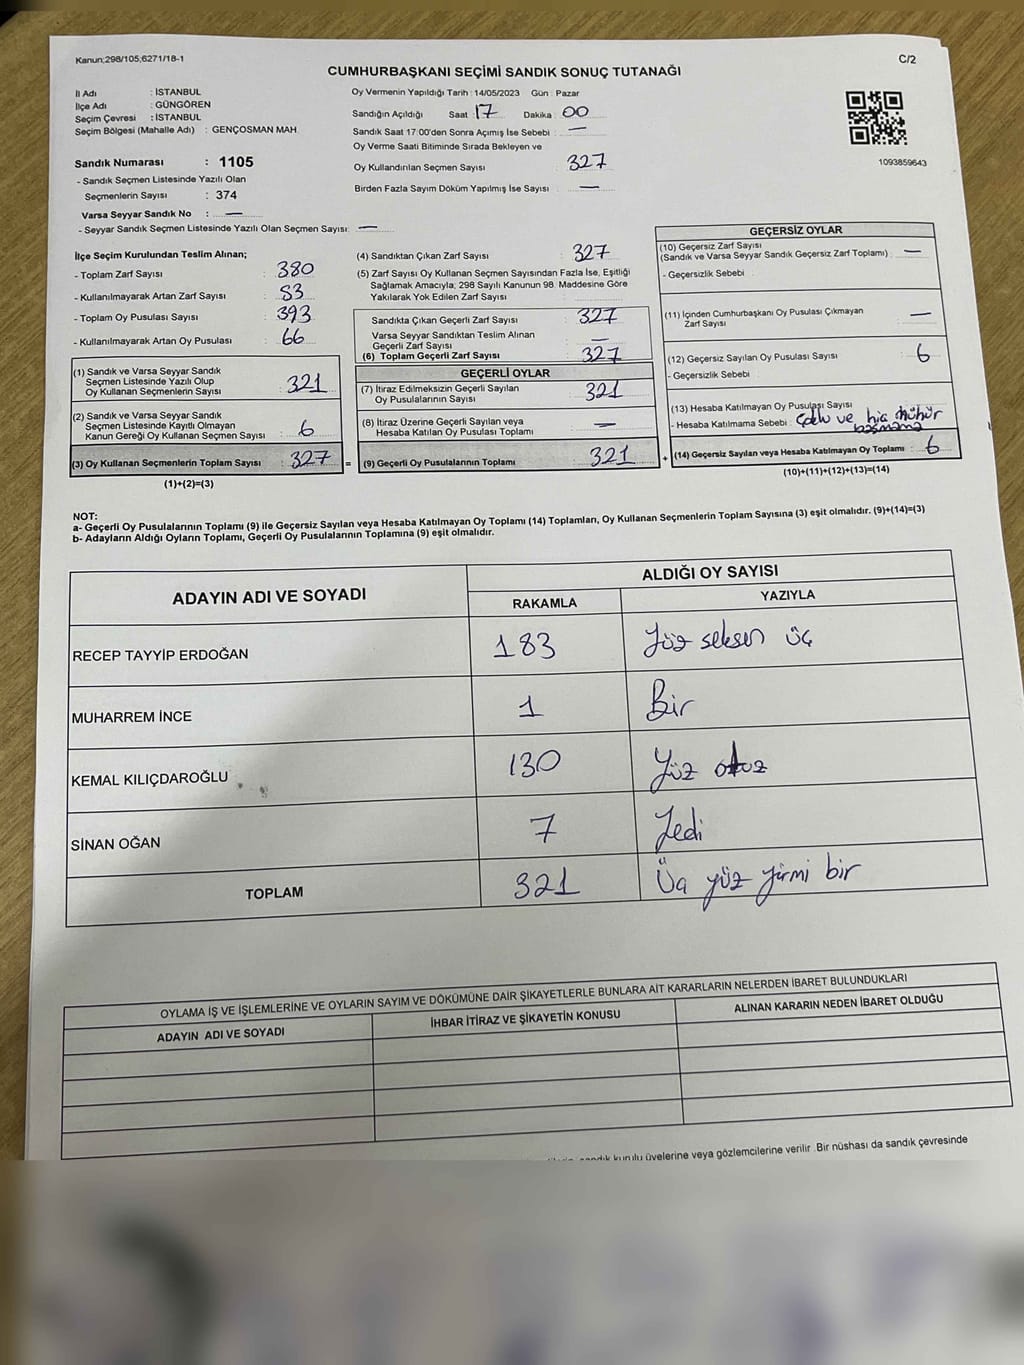 Kanun;298/105;6271/18-1
C/2
CUMHURBAŞKANI SEÇİMİ SANDIK SONUÇ TUTANAĞI
İl Adı : İSTANBUL
İlçe Adı : GÜNGÖREN
Seçim Çevresi : İSTANBUL
Seçim Bölgesi (Mahalle Adı) : GENÇOSMAN MAH.
Sandık Numarası : 1105
- Sandık Seçmen Listesinde Yazılı Olan
Seçmenlerin Sayısı : 374
Varsa Seyyar Sandık No : —
- Seyyar Sandık Seçmen Listesinde Yazılı Olan Seçmen Sayısı: —
Oy Vermenin Yapıldığı Tarih : 14/05/2023 Gün : Pazar
Sandığın Açıldığı Saat : 17 Dakika : 00
Sandık Saat 17:00'den Sonra Açımış İse Sebebi : —
Oy Verme Saati Bitiminde Sırada Bekleyen ve
Oy Kullandırılan Seçmen Sayısı : 327
Birden Fazla Sayım Döküm Yapılmış İse Sayısı : —
1093859643
İlçe Seçim Kurulundan Teslim Alınan;
- Toplam Zarf Sayısı : 380
- Kullanılmayarak Artan Zarf Sayısı : 53
- Toplam Oy Pusulası Sayısı : 393
- Kullanılmayarak Artan Oy Pusulası : 66
(1) Sandık ve Varsa Seyyar Sandık
Seçmen Listesinde Yazılı Olup
Oy Kullanan Seçmenlerin Sayısı : 321
(2) Sandık ve Varsa Seyyar Sandık
Seçmen Listesinde Kayıtlı Olmayan
Kanun Gereği Oy Kullanan Seçmen Sayısı : 6
(3) Oy Kullanan Seçmenlerin Toplam Sayısı : 327
(1)+(2)=(3)
(4) Sandıktan Çıkan Zarf Sayısı : 327
(5) Zarf Sayısı Oy Kullanan Seçmen Sayısından Fazla İse, Eşitliği
Sağlamak Amacıyla; 298 Sayılı Kanunun 98. Maddesine Göre
Yakılarak Yok Edilen Zarf Sayısı :
Sandıkta Çıkan Geçerli Zarf Sayısı : 327
Varsa Seyyar Sandıktan Teslim Alınan
Geçerli Zarf Sayısı : —
(6) Toplam Geçerli Zarf Sayısı : 327
GEÇERLİ OYLAR
(7) İtiraz Edilmeksizin Geçerli Sayılan
Oy Pusulalarının Sayısı : 321
(8) İtiraz Üzerine Geçerli Sayılan veya
Hesaba Katılan Oy Pusulası Toplamı : —
= (9) Geçerli Oy Pusulalarının Toplamı : 321
GEÇERSİZ OYLAR
(10) Geçersiz Zarf Sayısı
(Sandık ve Varsa Seyyar Sandık Geçersiz Zarf Toplamı) : —
- Geçersizlik Sebebi :
(11) İçinden Cumhurbaşkanı Oy Pusulası Çıkmayan
Zarf Sayısı : —
(12) Geçersiz Sayılan Oy Pusulası Sayısı : 6
- Geçersizlik Sebebi :
(13) Hesaba Katılmayan Oy Pusulası Sayısı
- Hesaba Katılmama Sebebi : ve hiç mühür
basmama
+ (14) Geçersiz Sayılan veya Hesaba Katılmayan Oy Toplamı : 6
(10)+(11)+(12)+(13)=(14)
NOT:
a- Geçerli Oy Pusulalarının Toplamı (9) ile Geçersiz Sayılan veya Hesaba Katılmayan Oy Toplamı (14) Toplamları, Oy Kullanan Seçmenlerin Toplam Sayısına (3) eşit olmalıdır. (9)+(14)=(3)
b- Adayların Aldığı Oyların Toplamı, Geçerli Oy Pusulalarının Toplamına (9) eşit olmalıdır.
ADAYIN ADI VE SOYADI
ALDIĞI OY SAYISI
RAKAMLA YAZIYLA
RECEP TAYYİP ERDOĞAN 183 Yüz seksen üç
MUHARREM İNCE 1 Bir
KEMAL KILIÇDAROĞLU 130 Yüz otuz
SİNAN OĞAN 7 Yedi
TOPLAM 321 Üç yüz yirmi bir
OYLAMA İŞ VE İŞLEMLERİNE VE OYLARIN SAYIM VE DÖKÜMÜNE DAİR ŞİKAYETLERLE BUNLARA AİT KARARLARIN NELERDEN İBARET BULUNDUKLARI
ADAYIN ADI VE SOYADI İHBAR İTİRAZ VE ŞİKAYETİN KONUSU ALINAN KARARIN NEDEN İBARET OLDUĞU
sandık kurulu üyelerine veya gözlemcilerine verilir. Bir nüshası da sandık çevresinde